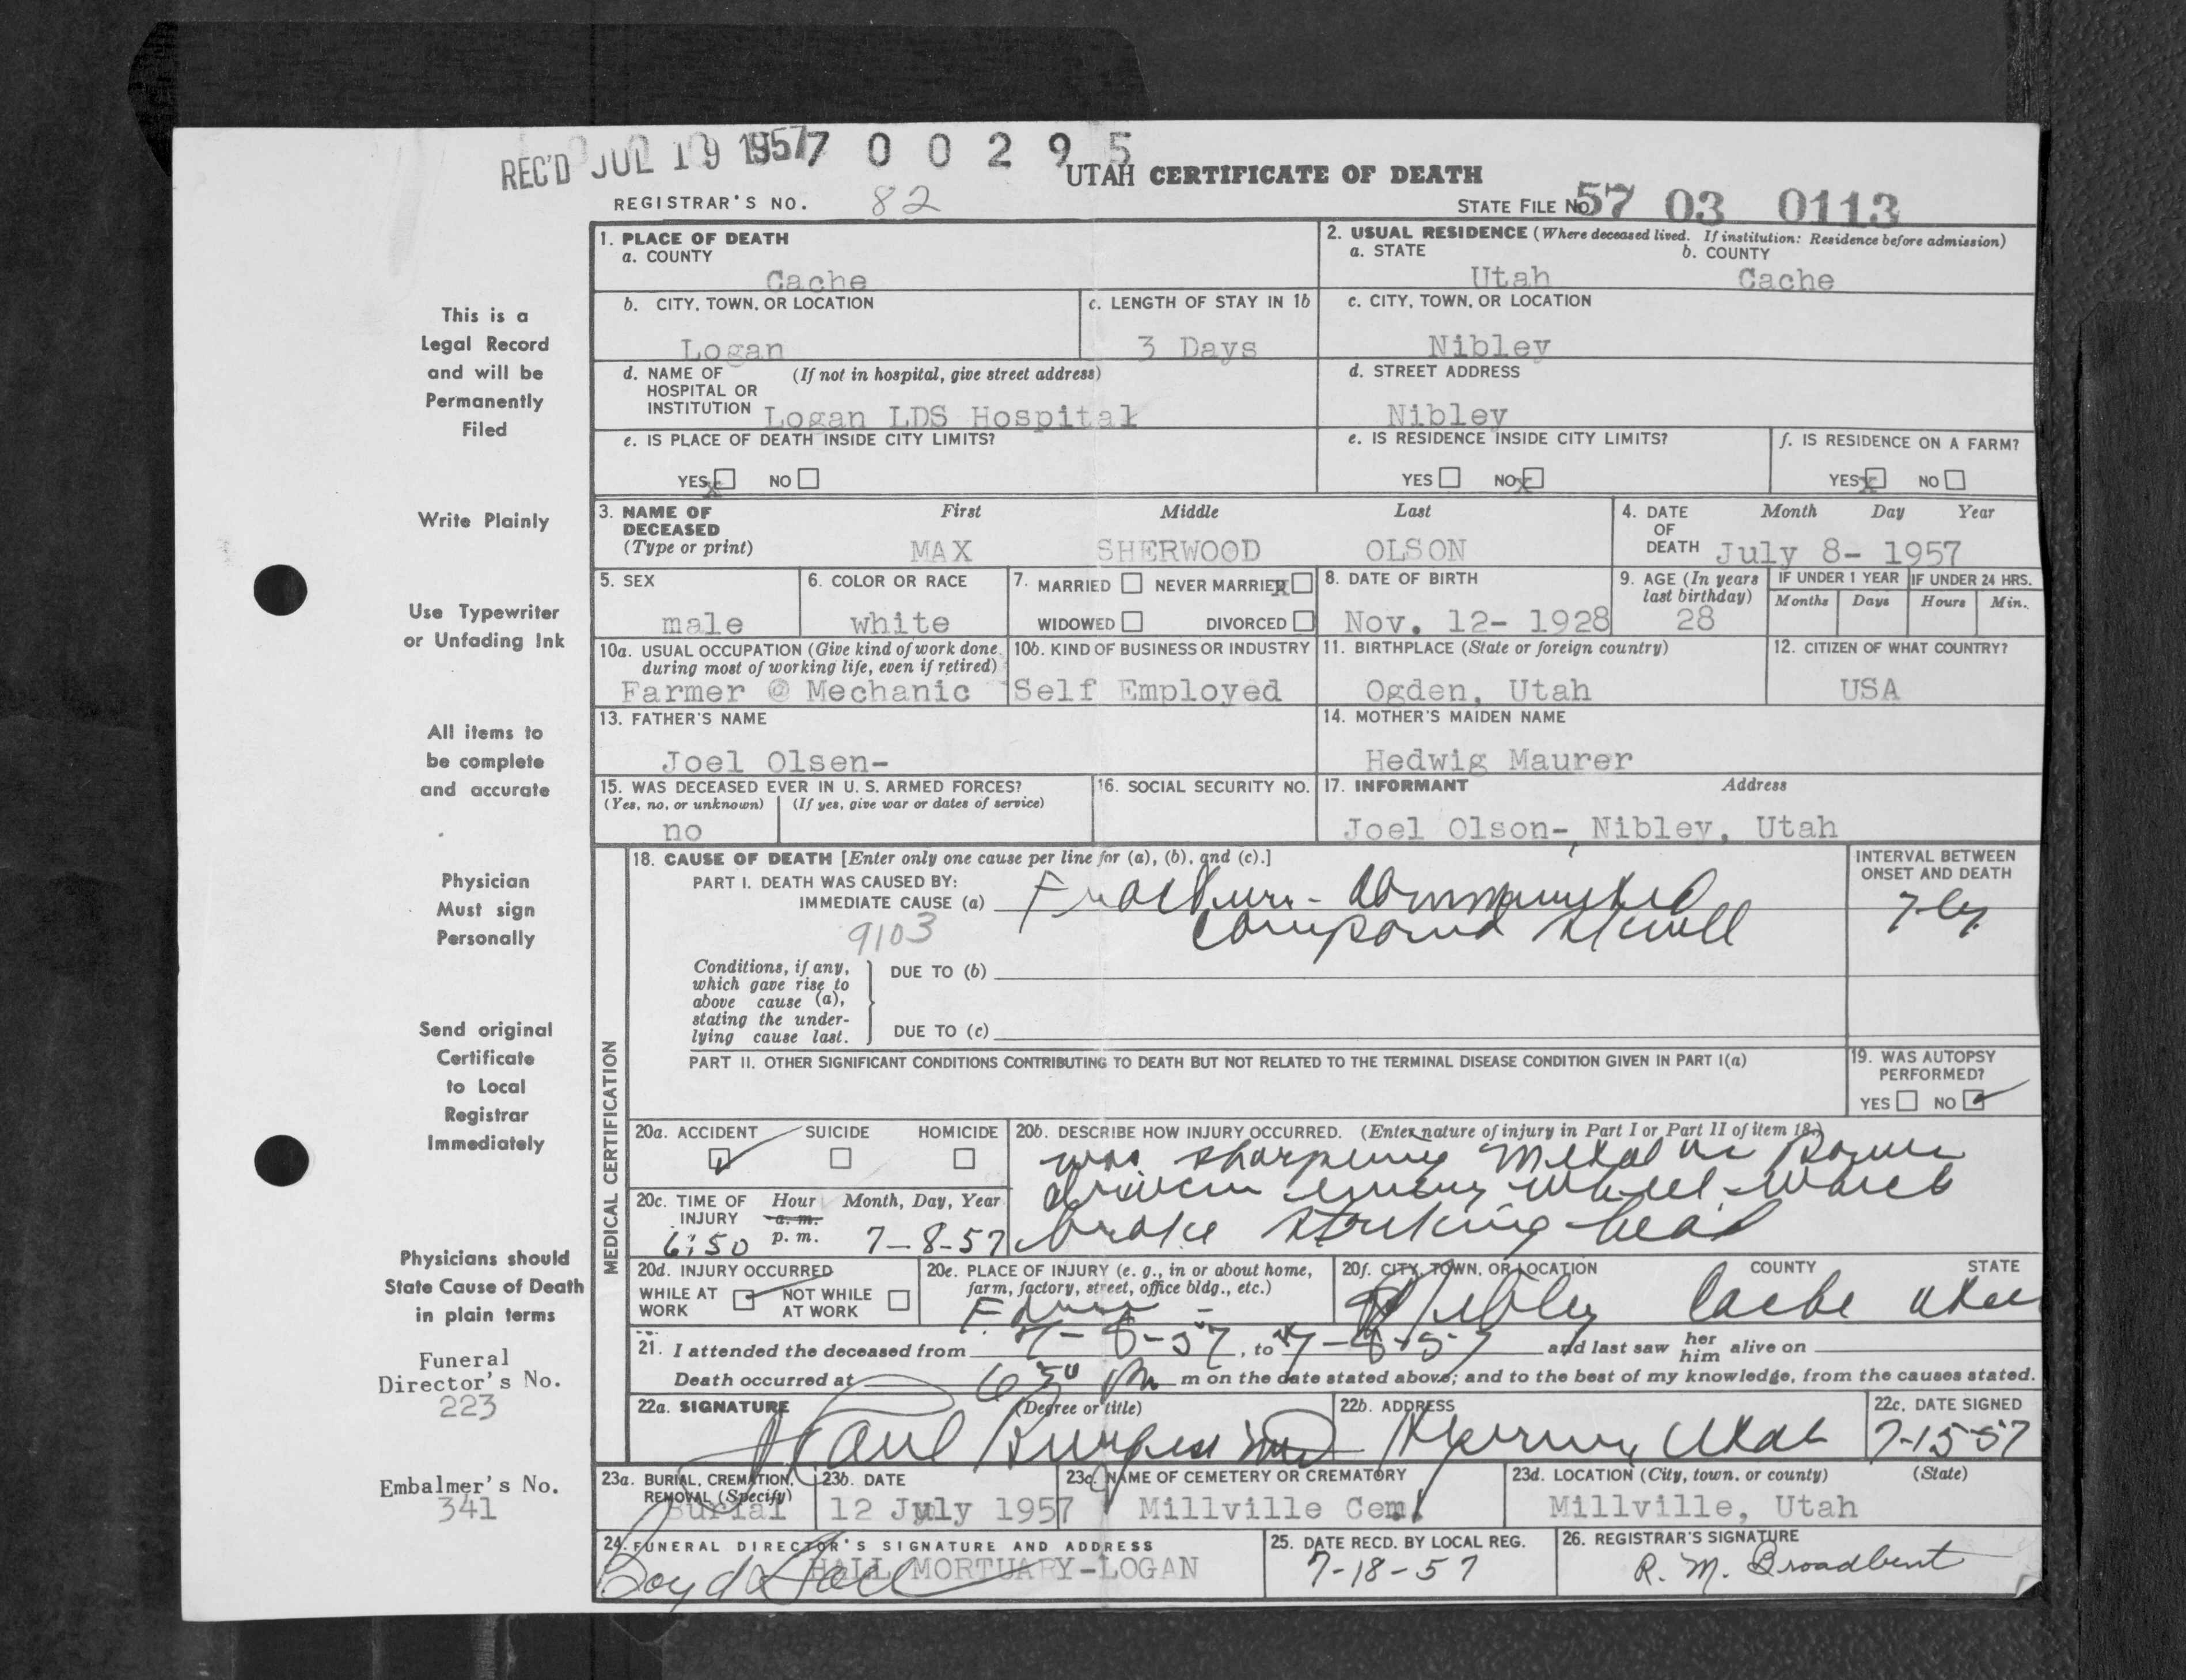 REC'D JUL 19 1957 7 0 0 2 9 5
UTAH CERTIFICATE OF DEATH
REGISTRAR'S NO. 82
STATE FILE No 57 03 0113
1. PLACE OF DEATH
a. COUNTY
Cache
2. USUAL RESIDENCE (Where deceased lived. If institution: Residence before admission)
a. STATE b. COUNTY
Utah Cache
b. CITY, TOWN, OR LOCATION
Logan
c. LENGTH OF STAY IN 1b
3 Days
c. CITY, TOWN, OR LOCATION
Nibley
d. NAME OF (If not in hospital, give street address)
HOSPITAL OR
INSTITUTION Logan LDS Hospital
d. STREET ADDRESS
Nibley
e. IS PLACE OF DEATH INSIDE CITY LIMITS?
YES x NO
e. IS RESIDENCE INSIDE CITY LIMITS?
YES NO x
f. IS RESIDENCE ON A FARM?
YES x NO
3. NAME OF First Middle Last
DECEASED
(Type or print) MAX SHERWOOD OLSON
4. DATE Month Day Year
OF
DEATH July 8- 1957
5. SEX
male
6. COLOR OR RACE
white
7. MARRIED NEVER MARRIED X
WIDOWED DIVORCED
8. DATE OF BIRTH
Nov. 12- 1928
9. AGE (In years
last birthday)
28
IF UNDER 1 YEAR IF UNDER 24 HRS.
Months Days Hours Min.
10a. USUAL OCCUPATION (Give kind of work done
during most of working life, even if retired)
Farmer @ Mechanic
10b. KIND OF BUSINESS OR INDUSTRY
Self Employed
11. BIRTHPLACE (State or foreign country)
Ogden, Utah
12. CITIZEN OF WHAT COUNTRY?
USA
13. FATHER'S NAME
Joel Olsen-
14. MOTHER'S MAIDEN NAME
Hedwig Maurer
15. WAS DECEASED EVER IN U. S. ARMED FORCES?
(Yes, no, or unknown) (If yes, give war or dates of service)
no
16. SOCIAL SECURITY NO.
17. INFORMANT Address
Joel Olson- Nibley, Utah
MEDICAL CERTIFICATION
18. CAUSE OF DEATH [Enter only one cause per line for (a), (b), and (c).]
PART I. DEATH WAS CAUSED BY:
IMMEDIATE CAUSE (a) Fracture - Comminuted
Compound skull
9103
INTERVAL BETWEEN
ONSET AND DEATH
Conditions, if any,
which gave rise to
above cause (a),
stating the under-
lying cause last.
DUE TO (b)
DUE TO (c)
PART II. OTHER SIGNIFICANT CONDITIONS CONTRIBUTING TO DEATH BUT NOT RELATED TO THE TERMINAL DISEASE CONDITION GIVEN IN PART I(a)
19. WAS AUTOPSY
PERFORMED?
YES NO ✓
20a. ACCIDENT ✓ SUICIDE HOMICIDE
20b. DESCRIBE HOW INJURY OCCURRED. (Enter nature of injury in Part I or Part II of item 18.)
was sharpening metal on Power
driven emery wheel which
broke striking head
20c. TIME OF Hour Month, Day, Year
INJURY a. m.
6:50 p. m. 7-8-57
20d. INJURY OCCURRED
WHILE AT NOT WHILE
WORK AT WORK
20e. PLACE OF INJURY (e. g., in or about home,
farm, factory, street, office bldg., etc.)
Farm -
20f. CITY, TOWN, OR LOCATION COUNTY STATE
Nibley Cache Utah
21. I attended the deceased from 7-8-57, to 7-8-57 and last saw her him alive on
Death occurred at 6 50 m on the date stated above; and to the best of my knowledge, from the causes stated.
22a. SIGNATURE (Degree or title)
Paul Burgess MD
22b. ADDRESS
Hyrum, Utah
22c. DATE SIGNED
7-15-57
23a. BURIAL, CREMATION,
REMOVAL (Specify)
Burial
23b. DATE
12 July 1957
23c. NAME OF CEMETERY OR CREMATORY
Millville Cem.
23d. LOCATION (City, town, or county) (State)
Millville, Utah
24. FUNERAL DIRECTOR'S SIGNATURE AND ADDRESS
HALL MORTUARY-LOGAN
Boyd Hall
25. DATE RECD. BY LOCAL REG.
7-18-57
26. REGISTRAR'S SIGNATURE
R. M. Broadbent
This is a
Legal Record
and will be
Permanently
Filed
Write Plainly
Use Typewriter
or Unfading Ink
All items to
be complete
and accurate
Physician
Must sign
Personally
Send original
Certificate
to Local
Registrar
Immediately
Physicians should
State Cause of Death
in plain terms
Funeral
Director's No.
223
Embalmer's No.
341